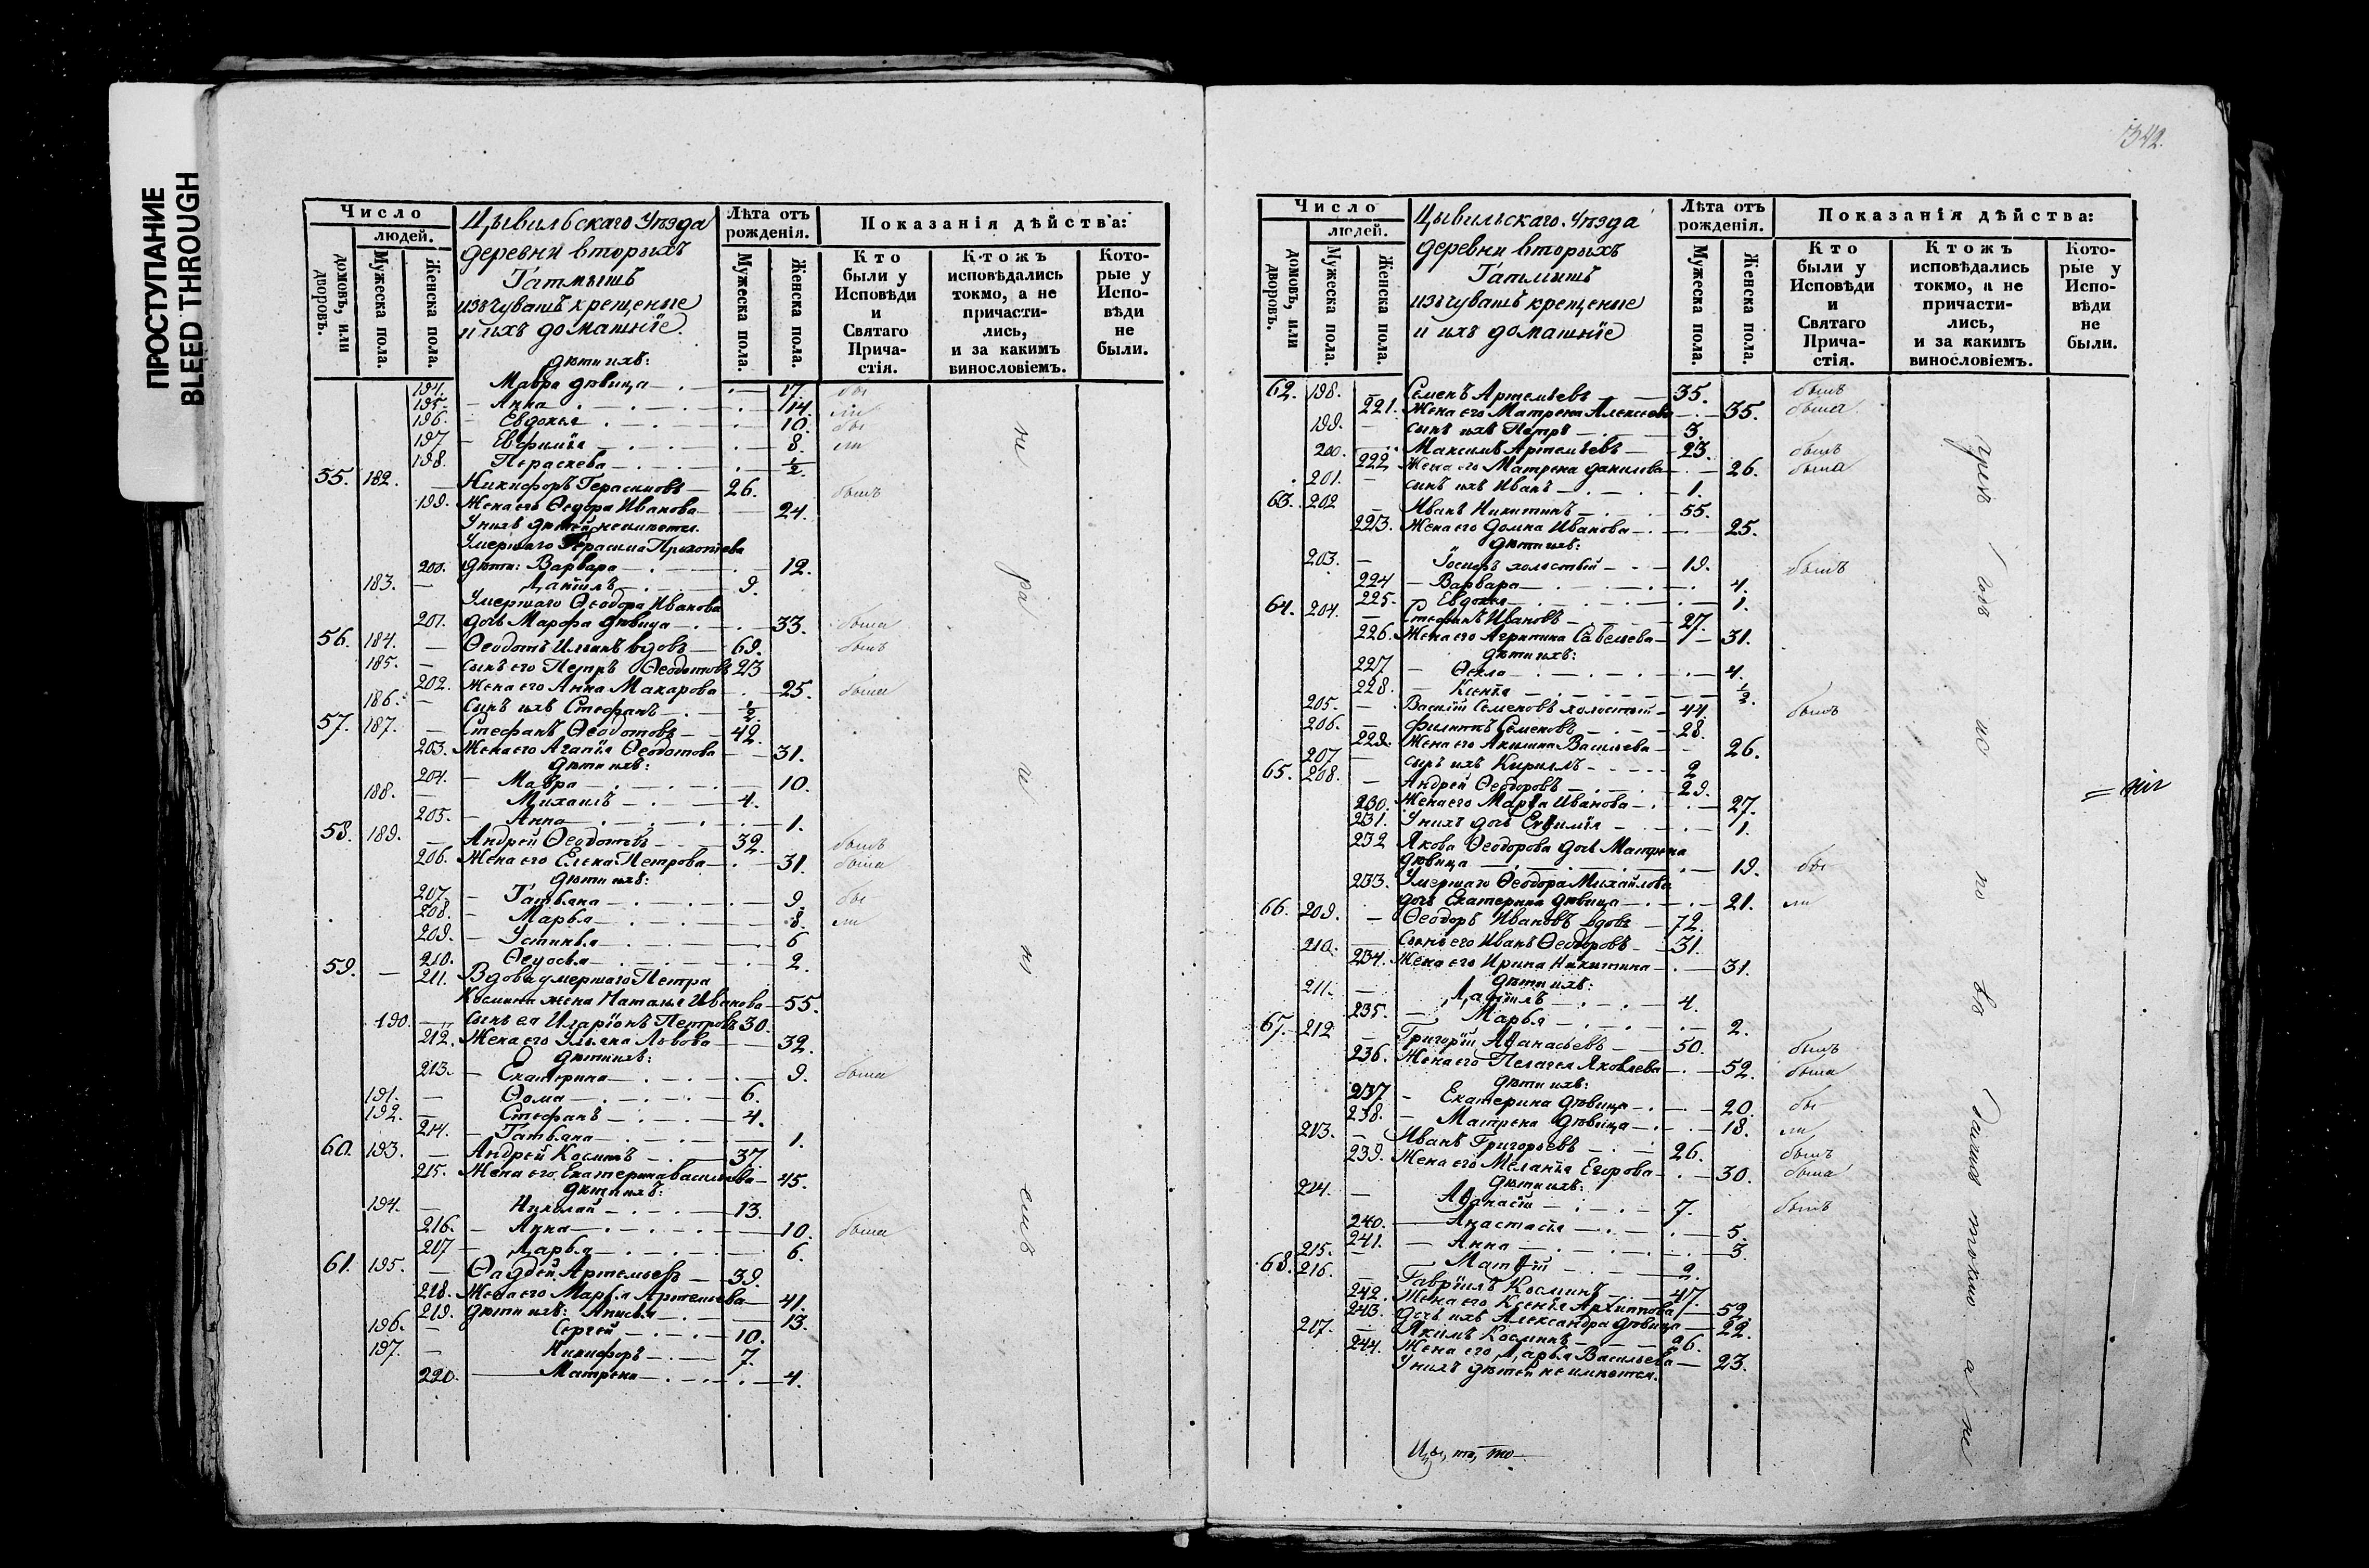 ПРОСТУПАНИЕ
BLEED THROUGH
Число
людей.
домовъ, или дворовъ.
Мужеска пола.
Женска пола.
Цывильскаго Уѣзда
деревни вторыхъ
Татмышъ
изъ чувашъ крещеные
и ихъ домашніе.
Лѣта отъ рожденія.
Мужеска пола.
Женска пола.
Показанія дѣйства:
Кто были у Исповѣди и Святаго Прича-стія.
Ктожъ исповѣдались токмо, а не причасти-лись, и за какимъ винословіемъ.
Кото-рые у Испо-вѣди не были.
дѣти ихъ:
194. Мавра дѣвица 17. бы
195. Анна 14. ли
196. Евдокья 10. бы
197 Евфимія 8. ли
198. Параскева 1/2
55. 182. Никифоръ Герасимовъ 26. былъ
199. Жена его Ѳедора Иванова 24.
У нихъ дѣтей неимѣется.
Умершаго Герасима Прокопіева
200. дѣти: Варвара 12.
183. Даніилъ 9.
Умершаго Ѳеодора Иванова
201. дочь Марфа дѣвица 33. была
56. 184. Ѳеодотъ Ильинъ вдовъ 69. былъ
185. сынъ его Петръ Ѳеодотовъ 23
202. Жена его Анна Макарова 25. была
186. Сынъ ихъ Стефанъ 1/2
57. 187. Стефанъ Ѳеодотовъ 42.
203. Жена его Агапія Ѳеодотова 31.
дѣти ихъ:
204. Мавра 10.
188. Михаилъ 4.
205. Анна 1.
58. 189. Андрей Ѳеодотовъ 32. былъ
206. Жена его Елена Петрова 31. была
дѣти ихъ:
207. Татьяна 9. бы
208. Марья 8. ли
209. Устинья 6
210. Ѳедосья 2.
59. 211. Вдова умершаго Петра
Космина жена Наталья Иванова 55.
190. сынъ ея Иларіонъ Петровъ 30.
212. Жена его Ульяна Львова 32.
дѣти ихъ:
213. Екатерина 9. была
191. Ѳома 6.
192. Стефанъ 4.
214. Татьяна 1.
60. 193. Андрей Косминъ 37.
215. Жена его Екатерина Васильева 45.
дѣти ихъ:
194. Николай 13.
216. Анна 10. была
217 Дарья 6.
61. 195. Ѳаддей Артемьевъ 39.
218. Жена его Марья Артемьева 41.
219. дѣти ихъ: Анисья 13.
196. Сергей 10.
197. Никифоръ 7.
220. Матрена 4.
342.
Число
людей.
домовъ, или дворовъ.
Мужеска пола.
Женска пола.
Цывильскаго Уѣзда
деревни вторыхъ
Татмышъ
изъ чувашъ крещеные
и ихъ домашніе
Лѣта отъ рожденія.
Мужеска пола.
Женска пола.
Показанія дѣйства:
Кто были у Исповѣди и Святаго Прича-стія.
Ктожъ исповѣдались токмо, а не причасти-лись, и за какимъ винословіемъ.
Кото-рые у Испо-вѣди не были.
62. 198. Семенъ Артемьевъ 35. былъ
221. Жена его Матрена Алексеева 35. была
199. сынъ ихъ Петръ 3.
200. Максимъ Артемьевъ 23. былъ
222 Жена его Матрена Данилова 26. была
201. сынъ ихъ Иванъ 1.
63. 202 Иванъ Никитинъ 55.
223. Жена его Домна Иванова 25.
дѣти ихъ:
203. Іосифъ холостый 19. былъ
224 Варвара 4.
225. Евдокья 1.
64. 204. Стефанъ Ивановъ 27.
226. Жена его Агрипина Савельева 31.
дѣти ихъ:
227 Ѳекла 4.
228. Ксенія 1/2.
205. Василій Семеновъ холостый 44. былъ
206. Филиппъ Семеновъ 28.
229. Жена его Акилина Васильева 26.
207 сынъ ихъ Кириллъ 2
65. 208. Андрей Ѳеодоровъ 29.
230. Жена его Марья Иванова 27.
231. У нихъ дочь Евфимія 1.
232 Якова Ѳеодорова дочь Матрена
дѣвица 19. бы
233. Умершаго Ѳеодора Михайлова
дочь Екатерина дѣвица 21. ли
66. 209. Ѳеодоръ Ивановъ вдовъ 72.
210. Сынъ его Иванъ Ѳеодоровъ 31.
234. Жена его Ирина Никитина 31.
дѣти ихъ:
211. Даніилъ 4.
235. Марья 2.
67. 212 Григорій Аѳанасьевъ 50. былъ
236. Жена его Пелагея Яковлева 52. была
дѣти ихъ:
237 Екатерина дѣвица 20. бы
238. Матрена дѣвица 18. ли
213. Иванъ Григорьевъ 26. былъ
239. Жена его Меланія Егорова 30. была
дѣти ихъ:
214. Аѳанасій 7. былъ
240. Анастасія 5.
241. Анна 3.
215. Матѳій 2.
68. 216. Гавріилъ Косминъ 47.
242. Жена его Ксенія Архиппова 52.
243. Дочь ихъ Александра дѣвица 22.
217. Якимъ Косминъ 26.
244. Жена его Дарья Васильева 23.
У нихъ дѣтей не имѣется.